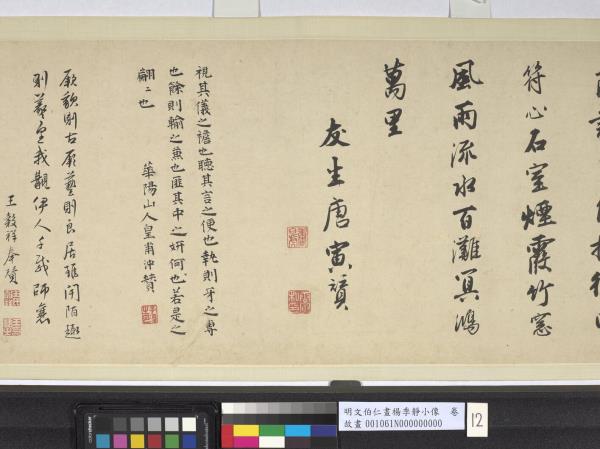 符心石室煙霞竹窓
風雨流水百灘冥鴻
萬里
友生唐寅贊
視其儀之襜也聽其言之便也執則牙之專
也餘則輸之蕉也匪其中之妍何也若是之
翩〻也
華陽山人皇甫沖贊
厥貌則古厥藝則良居雖閈陌趣
則羲皇我覯伊人千載師襄
王穀祥奉贊
明文伯仁畫楊季靜小像 卷
故畫 001061N000000000
12